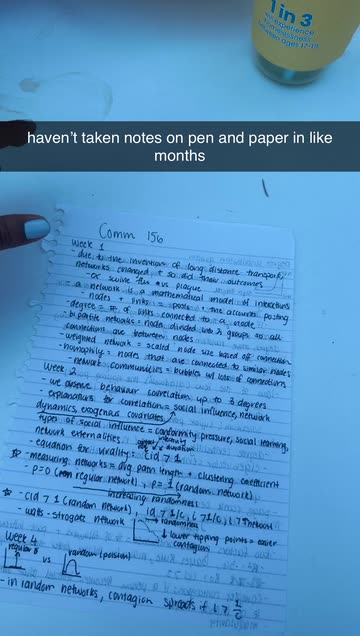 1 in 3
experience
homelessness
between ages 12-18
haven't taken notes on pen and paper in like
months
Comm 156
Week 1
- due to the invention of long distance transport,
networks changed & so did their outcomes
- ex swine flu vs plague
- a network is a mathematical model of interactions
- nodes + links = posts + the accounts posting
- degree = # of links connected to a node
- bipartite networks = node divided into 2 groups so all
connections are between nodes
- weighted network = scaled node size based off connection
- homophily = nodes that are connected to similar nodes
- network communities = bubbles w/ lots of connections
Week 2
- we observe behaviour correlation up to 3 degrees
- explanations for correlation = social influence, network
dynamics, exogenous covariates
- types of social influence = conformity pressure, social learning,
network externalities
- equation for virality = cid > 1
- measuring networks = avg. path length + clustering coefficient
- p=0 (regular network), p=1 (random network)
increasing randomness
- cid > 1 (random network), id > 1/c, i > 1/c, i > network
- watts-strogatz network
randomness
↓ lower tipping points = easier
contagion
Week 4
regular
vs
random (poisson)
- in random networks, contagion spreads if i >